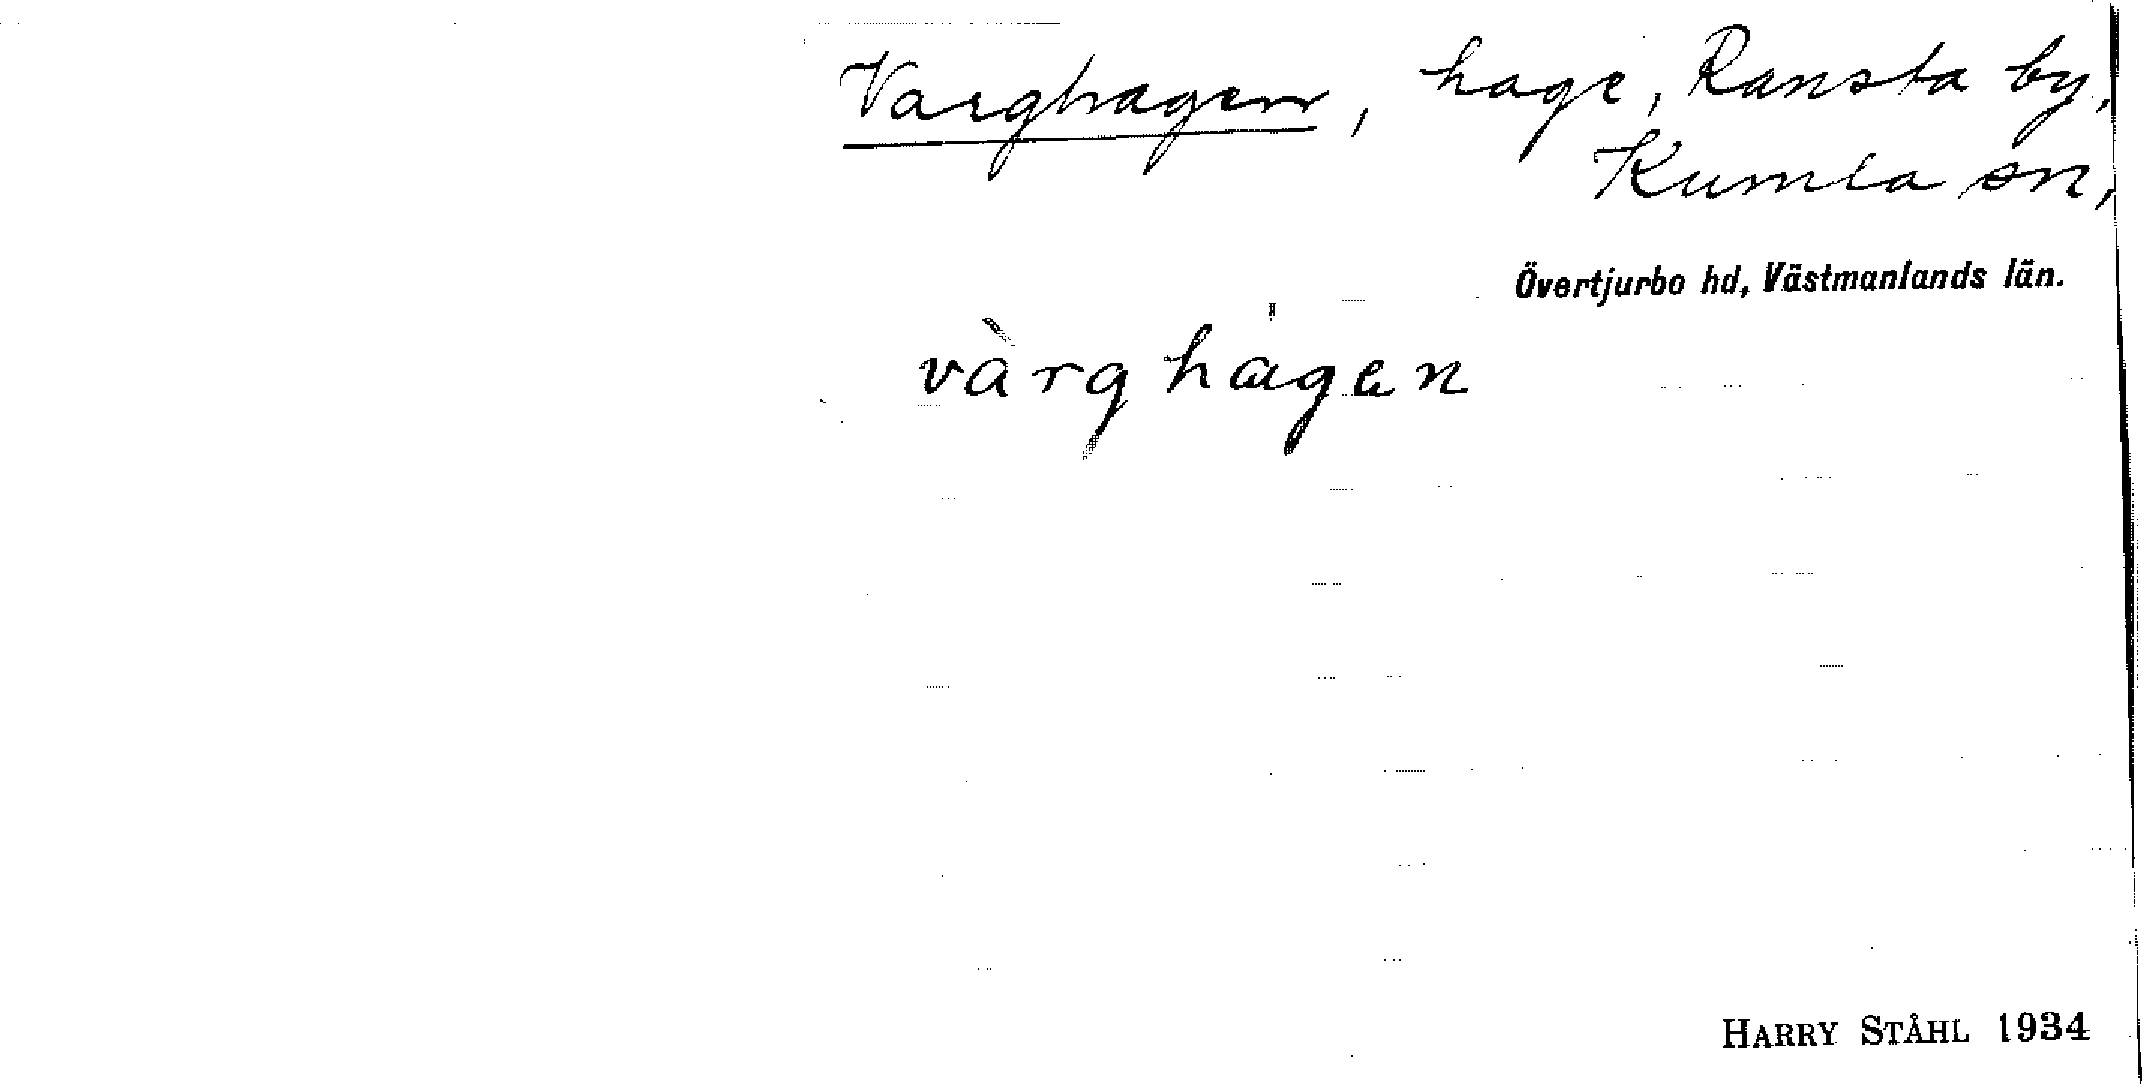 Varghagen, hage, Ransta by,
Kumla sn,
Övertjurbo hd, Västmanlands län.
vàrghágen
HARRY STÅHL 1934